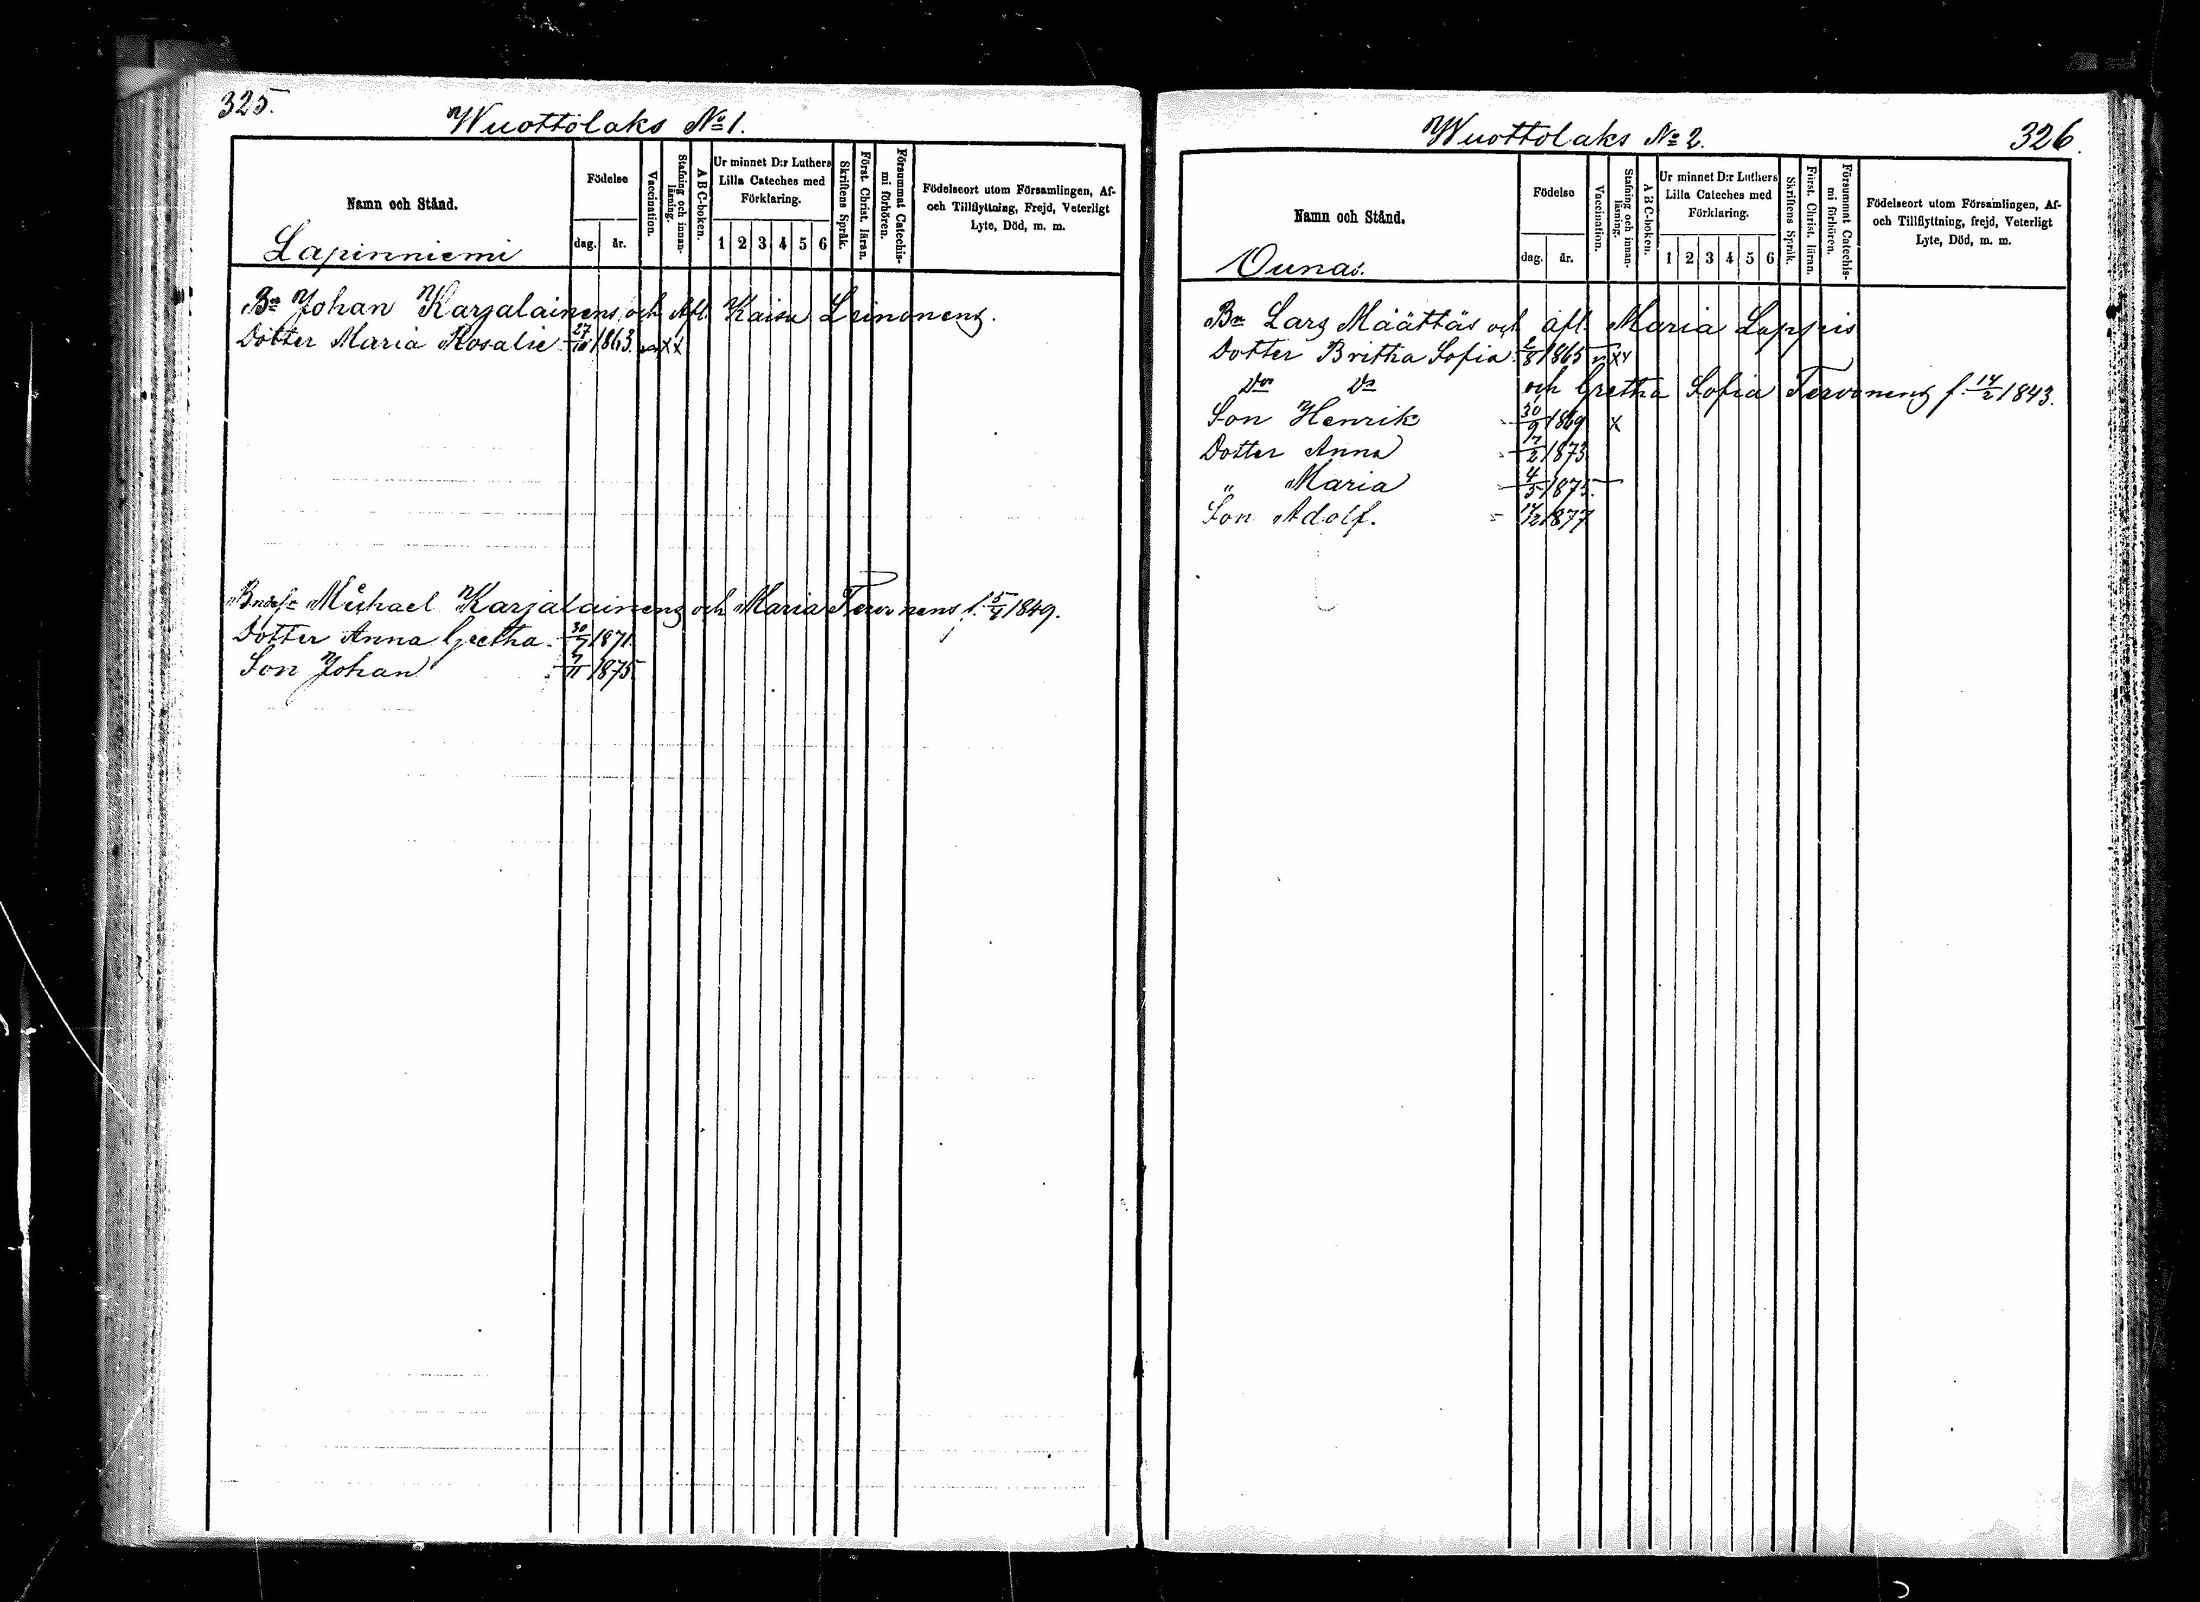 325.
Wuottolaks No 1.
Namn och Stånd.
Födelse
dag. år.
Vaccination.
Stafning och innanläsning.
ABC-boken.
Ur minnet D:r Luthers
Lilla Cateches med
Förklaring.
1 2 3 4 5 6
Skriftens Språk.
Först. Christ. läran.
Försummat Catechismi förhören.
Födelseort utom Församlingen, Af-
och Tillflyttning, Frejd, Veterligt
Lyte, Död, m. m.
Lapinniemi
Bn Johan Karjalainens och Afl. Kaisa Leinonens.
Dotter Maria Rosalie 27/10 1863. xx
Michael Karjalainens och Maria Tervonens f. 5/4 1849.
Dotter Anna Gretha 30/7 1871.
Son Johan 7/11 1875.
Wuottolaks No 2.
326.
Namn och Stånd.
Födelse
dag. år.
Vaccination.
Stafning och innanläsning.
ABC-boken.
Ur minnet D:r Luthers
Lilla Cateches med
Förklaring.
1 2 3 4 5 6
Skriftens Språk.
Först. Christ. läran.
Försummat Catechismi förhören.
Födelseort utom Församlingen, Af-
och Tillflyttning, frejd, Veterligt
Lyte, Död, m. m.
Ounas.
Bn Lars Määttäs och afl. Maria Lappis
Dotter Britha Sofia 2/8 1865 v xx
Do Do och Gretha Sofia Tervonens f. 14/2 1843.
Son Henrik 30/9 1869 x
Dotter Anna 7/2 1873
" Maria 4/5 1875.
Son Adolf. 1877